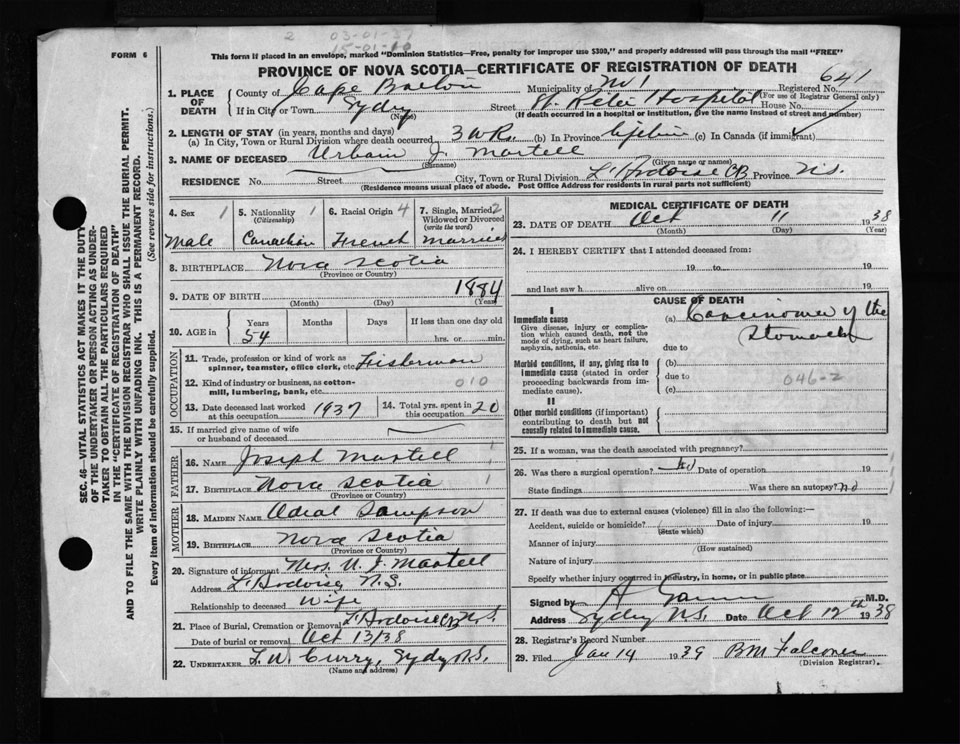 2 03-01-37
15-01-10
FORM 6
This form if placed in an envelope, marked "Dominion Statistics—Free, penalty for improper use $300," and properly addressed will pass through the mail "FREE"
PROVINCE OF NOVA SCOTIA—CERTIFICATE OF REGISTRATION OF DEATH
641
1. PLACE OF DEATH
County of Cape Breton Municipality of No 1 Registered No.
(For use of Registrar General only)
If in City or Town Sydney Street Hospital House No.
(Name) (If death occurred in a hospital or institution, give the name instead of street and number)
2. LENGTH OF STAY (in years, months and days)
(a) In City, Town or Rural Division where death occurred 3 wks. (b) In Province lifetime (c) In Canada (if immigrant)
3. NAME OF DECEASED Urbain J. Martell
(Surname) (Given name or names)
RESIDENCE No. Street City, Town or Rural Division L'Ardoise CB Province N.S.
(Residence means usual place of abode. Post Office Address for residents in rural parts not sufficient)
4. Sex 1
Male
5. Nationality 1
(Citizenship)
Canadian
6. Racial Origin 4
French
7. Single, Married 2
Widowed or Divorced
(write the word)
Married
8. BIRTHPLACE Nova Scotia
(Province or Country)
9. DATE OF BIRTH 1884
(Month) (Day) (Year)
10. AGE in Years Months Days If less than one day old
54 hrs. or min.
OCCUPATION
11. Trade, profession or kind of work as
spinner, teamster, office clerk, etc. Fisherman
12. Kind of industry or business, as cotton-
mill, lumbering, bank, etc. 010
13. Date deceased last worked
at this occupation 1937
14. Total yrs. spent in
this occupation 20
15. If married give name of wife
or husband of deceased
FATHER
16. NAME Joseph Martell
17. BIRTHPLACE Nova Scotia
(Province or Country)
MOTHER
18. MAIDEN NAME Sampson
19. BIRTHPLACE Nova Scotia
(Province or Country)
20. Signature of informant Mrs. U. J. Martell
Address L'Ardoise, N.S.
Relationship to deceased Wife
21. Place of Burial, Cremation or Removal L'Ardoise CB N.S.
Date of burial or removal Oct 13/38
22. UNDERTAKER L. W. Curry, Sydney N.S.
(Name and address)
MEDICAL CERTIFICATE OF DEATH
23. DATE OF DEATH Oct 11 1938
(Month) (Day) (Year)
24. I HEREBY CERTIFY that I attended deceased from:
19 to 19
and last saw h alive on 19
CAUSE OF DEATH
I
Immediate cause (a) Carcinoma of the
Give disease, injury or complica-
tion which caused death, not the
mode of dying, such as heart failure,
asphyxia, asthenia, etc.
Stomach
due to
Morbid conditions, if any, giving rise to
immediate cause (stated in order
proceeding backwards from im-
mediate cause).
(b)
due to 046-2
(c)
II
Other morbid conditions (if important)
contributing to death but not
causally related to immediate cause.
25. If a woman, was the death associated with pregnancy?
26. Was there a surgical operation? No Date of operation 19
State findings Was there an autopsy? no
27. If death was due to external causes (violence) fill in also the following:—
Accident, suicide or homicide? Date of injury 19
(State which)
Manner of injury
(How sustained)
Nature of injury
Specify whether injury occurred in industry, in home, or in public place
Signed by M.D.
Address Sydney N.S. Date Oct 12th 1938
28. Registrar's Record Number
29. Filed Jan 14 1939 BM Falconer
(Division Registrar)
SEC. 46—VITAL STATISTICS ACT MAKES IT THE DUTY
OF THE UNDERTAKER OR PERSON ACTING AS UNDER-
TAKER TO OBTAIN ALL THE PARTICULARS REQUIRED
IN THE "CERTIFICATE OF REGISTRATION OF DEATH"
AND TO FILE THE SAME WITH THE DIVISION REGISTRAR WHO SHALL ISSUE THE BURIAL PERMIT.
WRITE PLAINLY WITH UNFADING INK. THIS IS A PERMANENT RECORD.
Every item of information should be carefully supplied. (See reverse side for instructions.)